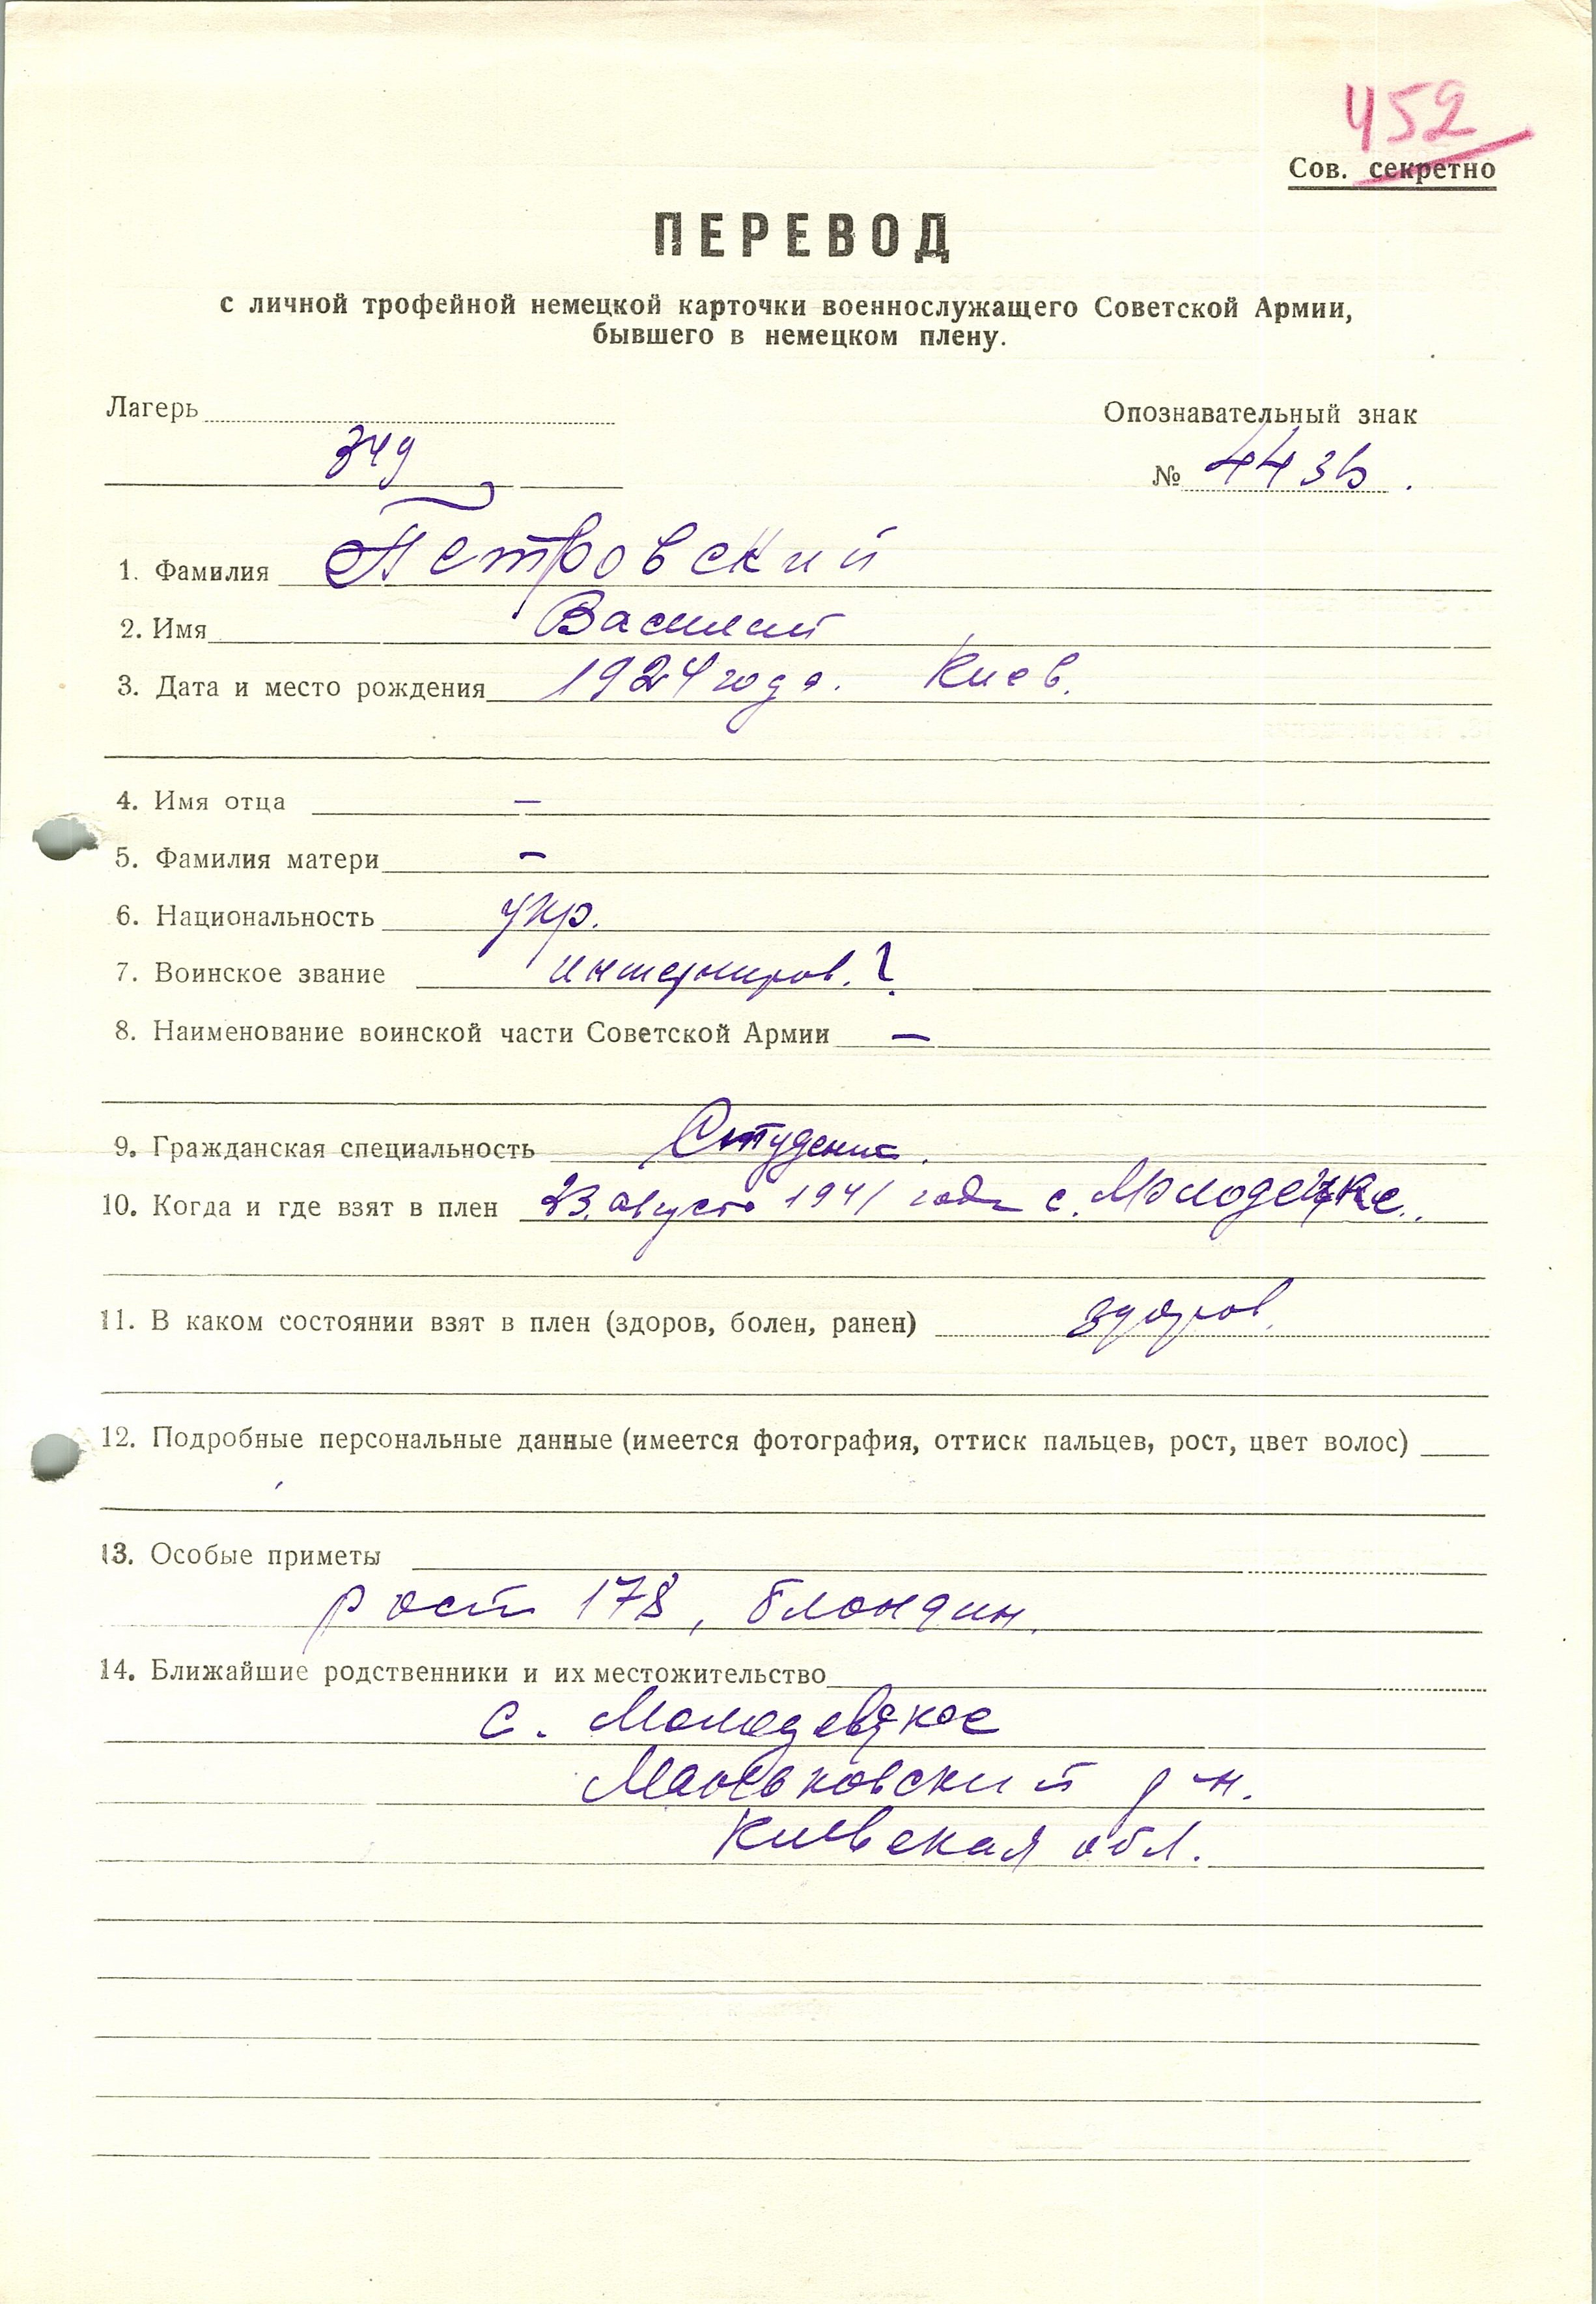 452
Сов. секретно
ПЕРЕВОД
с личной трофейной немецкой карточки военнослужащего Советской Армии,
бывшего в немецком плену.
Лагерь
Опознавательный знак
349
№ 443
1. Фамилия Петровский
2. Имя Василий
3. Дата и место рождения 1924 года. Киев.
4. Имя отца —
5. Фамилия матери —
6. Национальность укр.
7. Воинское звание интерниров. ?
8. Наименование воинской части Советской Армии —
9. Гражданская специальность Студент.
10. Когда и где взят в плен 23. августа 1941 года с.
11. В каком состоянии взят в плен (здоров, болен, ранен) здоров.
12. Подробные персональные данные (имеется фотография, оттиск пальцев, рост, цвет волос)
13. Особые приметы
рост 178, блондин.
14. Ближайшие родственники и их местожительство
с.
Маньковский р-н.
Киевская обл.